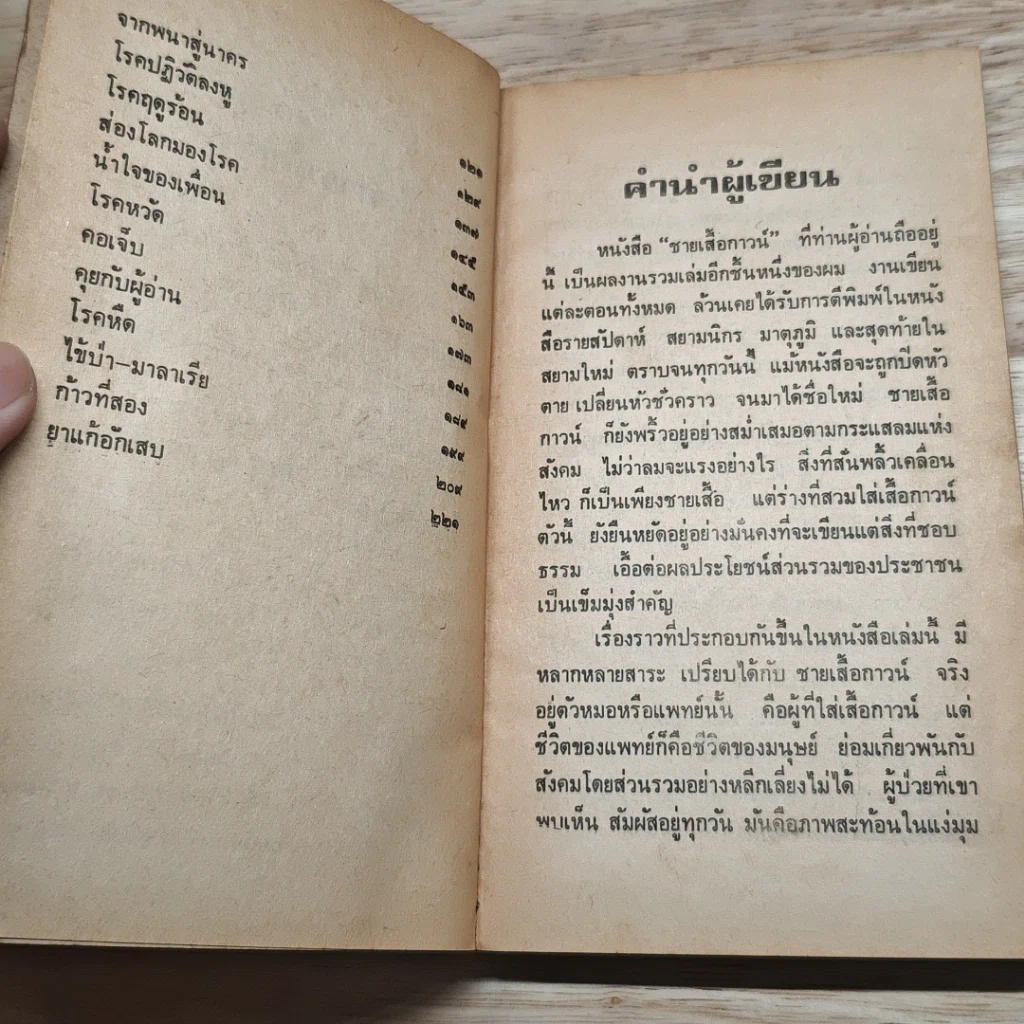 จากพนาสู่นาคร ๑๒๑
โรคปฏิวัติลงหู ๑๒๙
โรคฤดูร้อน ๑๓๗
ส่องโลกมองโรค ๑๔๕
น้ำใจของเพื่อน ๑๕๓
โรคหวัด ๑๖๓
คอเจ็บ ๑๗๓
คุยกับผู้อ่าน ๑๘๑
โรคหืด ๑๘๙
ไข้ป่า—มาลาเรีย ๑๙๙
ก้าวที่สอง ๒๐๙
ยาแก้อักเสบ ๒๒๑
คำนำผู้เขียน
หนังสือ “ชายเสื้อกาวน์” ที่ท่านผู้อ่านถืออยู่
นี้ เป็นผลงานรวมเล่มอีกชิ้นหนึ่งของผม งานเขียน
แต่ละตอนทั้งหมด ล้วนเคยได้รับการตีพิมพ์ในหนัง
สือรายสัปดาห์ สยามนิกร มาตุภูมิ และสุดท้ายใน
สยามใหม่ ตราบจนทุกวันนี้ แม้หนังสือจะถูกปิดหัว
ตาย เปลี่ยนหัวชั่วคราว จนมาได้ชื่อใหม่ ชายเสื้อ
กาวน์ ก็ยังพริ้วอยู่อย่างสม่ำเสมอตามกระแสลมแห่ง
สังคม ไม่ว่าลมจะแรงอย่างไร สิ่งที่สั่นพลิ้วเคลื่อน
ไหว ก็เป็นเพียงชายเสื้อ แต่ร่างที่สวมใส่เสื้อกาวน์
ตัวนี้ ยังยืนหยัดอยู่อย่างมั่นคงที่จะเขียนแต่สิ่งที่ชอบ
ธรรม เอื้อต่อผลประโยชน์ส่วนรวมของประชาชน
เป็นเข็มมุ่งสำคัญ
เรื่องราวที่ประกอบกันขึ้นในหนังสือเล่มนี้ มี
หลากหลายสาระ เปรียบได้กับ ชายเสื้อกาวน์ จริง
อยู่ตัวหมอหรือแพทย์นั้น คือผู้ที่ใส่เสื้อกาวน์ แต่
ชีวิตของแพทย์ก็คือชีวิตของมนุษย์ ย่อมเกี่ยวพันกับ
สังคมโดยส่วนรวมอย่างหลีกเลี่ยงไม่ได้ ผู้ป่วยที่เขา
พบเห็น สัมผัสอยู่ทุกวัน มันคือภาพสะท้อนในแง่มุม